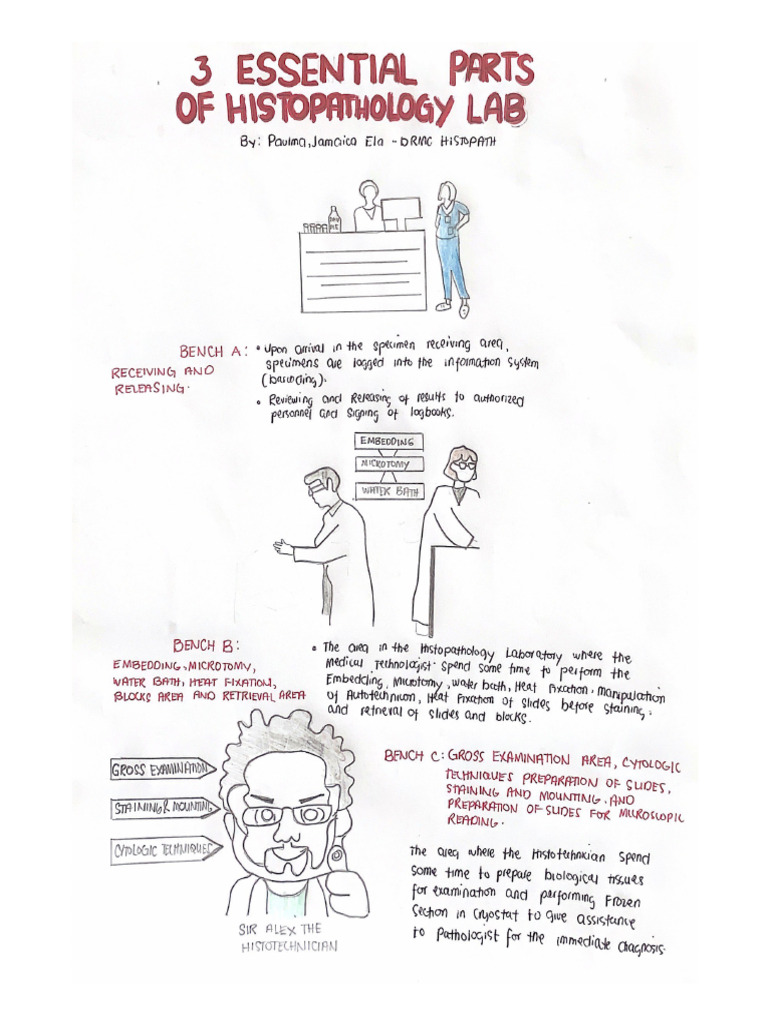 3 ESSENTIAL PARTS
OF HISTOPATHOLOGY LAB
By: Paulma, Jamaica Ela - DRMC HISTOPATH
BENCH A:
RECEIVING AND
RELEASING.
• Upon arrival in the specimen receiving area,
specimens are logged into the information system
(barcoding).
• Reviewing and Releasing of results to authorized
personnel and signing of logbooks.
EMBEDDING
MICROTOMY
WATER BATH
BENCH B:
EMBEDDING, MICROTOMY,
WATER BATH, HEAT FIXATION,
BLOCKS AREA AND RETRIEVAL AREA
• The area in the Histopathology Laboratory where the
Medical Technologist spend some time to perform the
Embedding, Microtomy, water bath, Heat Fixation, Manipulation
of Autotechnicon, Heat Fixation of slides before staining,
and retrieval of slides and blocks.
GROSS EXAMINATION
STAINING & MOUNTING
CYTOLOGIC TECHNIQUES
SIR ALEX THE
HISTOTECHNICIAN
BENCH C: GROSS EXAMINATION AREA, CYTOLOGIC
TECHNIQUES PREPARATION OF SLIDES,
STAINING AND MOUNTING. AND
PREPARATION OF SLIDES FOR MICROSCOPIC
READING.
The area where the Histotechnician spend
some time to prepare biological tissues
for examination and performing Frozen
Section in cryostat to give assistance
to Pathologist for the immediate diagnosis.